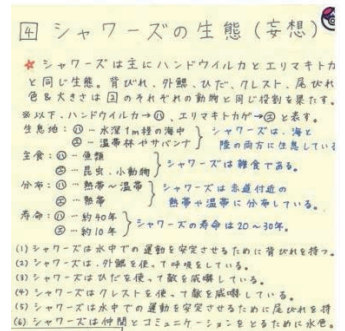 ④ シャワーズの生態(妄想)
☆ シャワーズは主にハンドウイルカとエリマキトカ
と同じ生態。背びれ、外鰓、ひだ、クレスト、尾びれ
色&大きさは③のそれぞれの動物と同じ役割を果たす。
※以下、ハンドウイルカ→ハ、エリマキトカゲ→エ と表す。
生息地:ハ…水深1m程の海中
エ…温帯林やサバンナ
シャワーズは、海と
陸の両方に生息してい
主食:ハ…魚類
エ…昆虫、小動物
シャワーズは雑食である。
分布:ハ…熱帯~温帯
エ…熱帯
シャワーズは赤道付近の
熱帯や温帯に分布している。
寿命:ハ…約40年
エ…約10年
シャワーズの寿命は20~30年。
(1) シャワーズは水中での運動を安定させるために背びれを持つ。
(2) シャワーズは、外鰓を使って呼吸をしている。
(3) シャワーズはひだを使って敵を威嚇している。
(4) シャワーズはクレストを使って敵を威嚇している。
(5) シャワーズは水中での運動を安定させるために尾びれを持
(6) シャワーズは仲間とコミュニケーションをとるために水色、